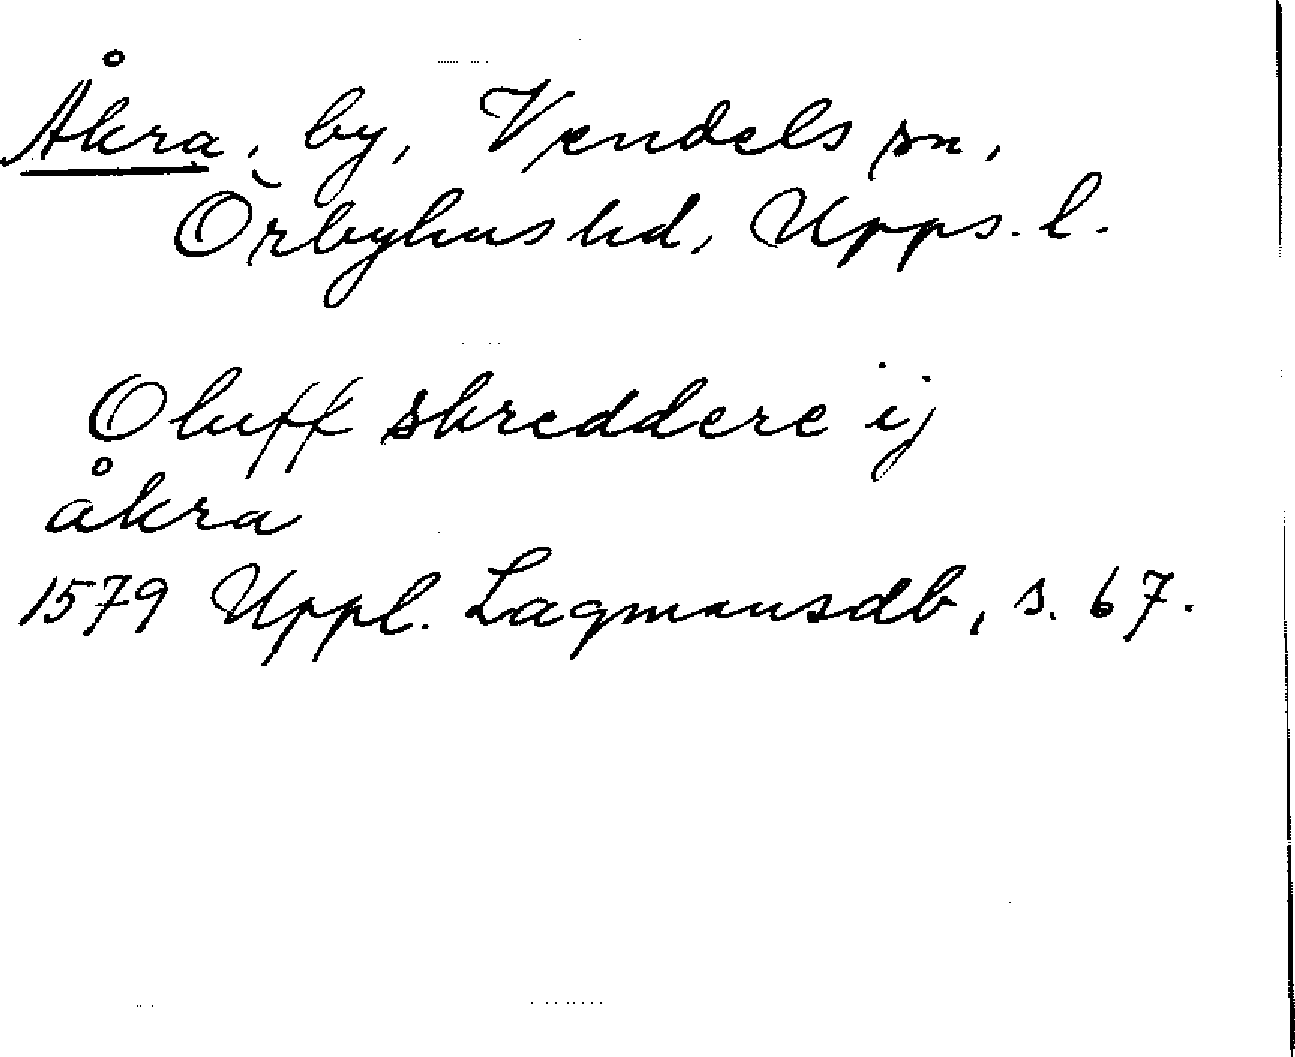 Åkra, by, Vendels sn,
Örbyhus hd, Upps. l.
Oluff skreddere ij
åkra
1579 Uppl. Lagmansdb, s. 67.